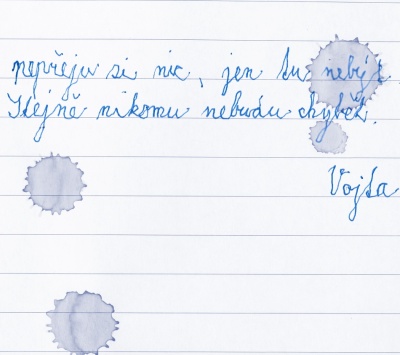 nepřeju si nic, jen tu nebýt.
Stejně nikomu nebudu chybět.
Vojta